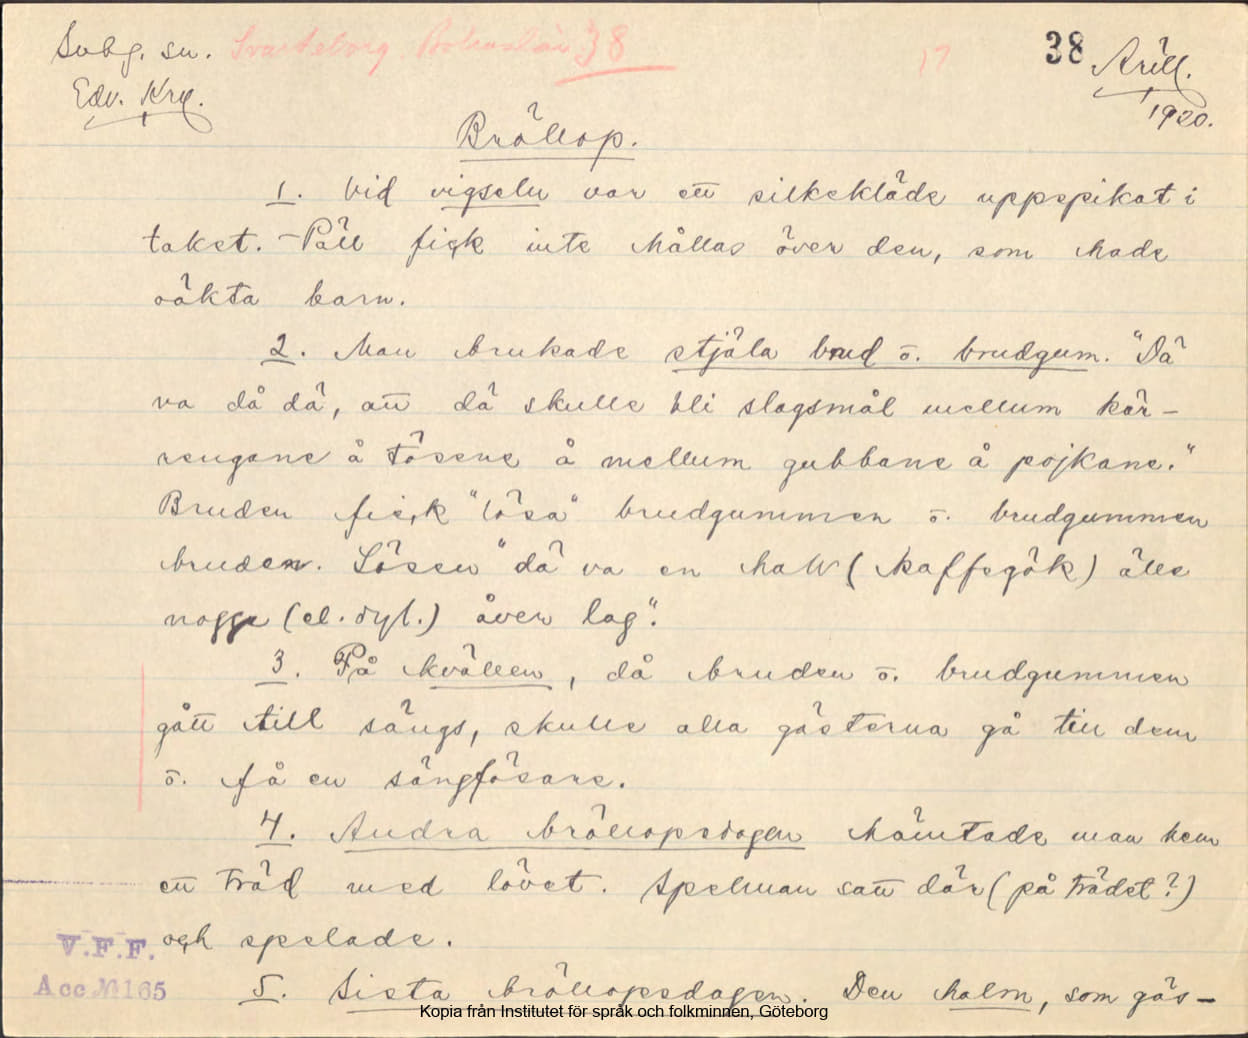 Svbg. sn. Svarteborg. Bohuslän 38 17 38 Arill.
Edv. Krg. 1920.
Bröllop.
1. Vid vigseln var ett silkekläde uppspikat i
taket. – Päll fick inte hållas över den, som hade
oäkta barn.
2. Man brukade stjäla brud o. brudgum. "Dä
va då dä, att dä skulle bli slagsmål mellum kär-
rengane å tösene å mellum gubbane å pojkane."
Bruden fick "lösa" brudgummen o. brudgummen
bruden. Lösen "dä va en halv (kaffegök) älle
nogge (el. dyl.) över lag".
3. På kvällen, då bruden o. brudgummen
gått till sängs, skulle alla gästerna gå till dem
o. få en sängfösare.
4. Andra bröllopsdagen hämtade man hem
ett träd med lövet. Spelman satt där (på trädet?)
och spelade.
V.F.F.
Acc № 165
5. Sista bröllopsdagen. Den halm, som gäs-
Kopia från Institutet för språk och folkminnen, Göteborg